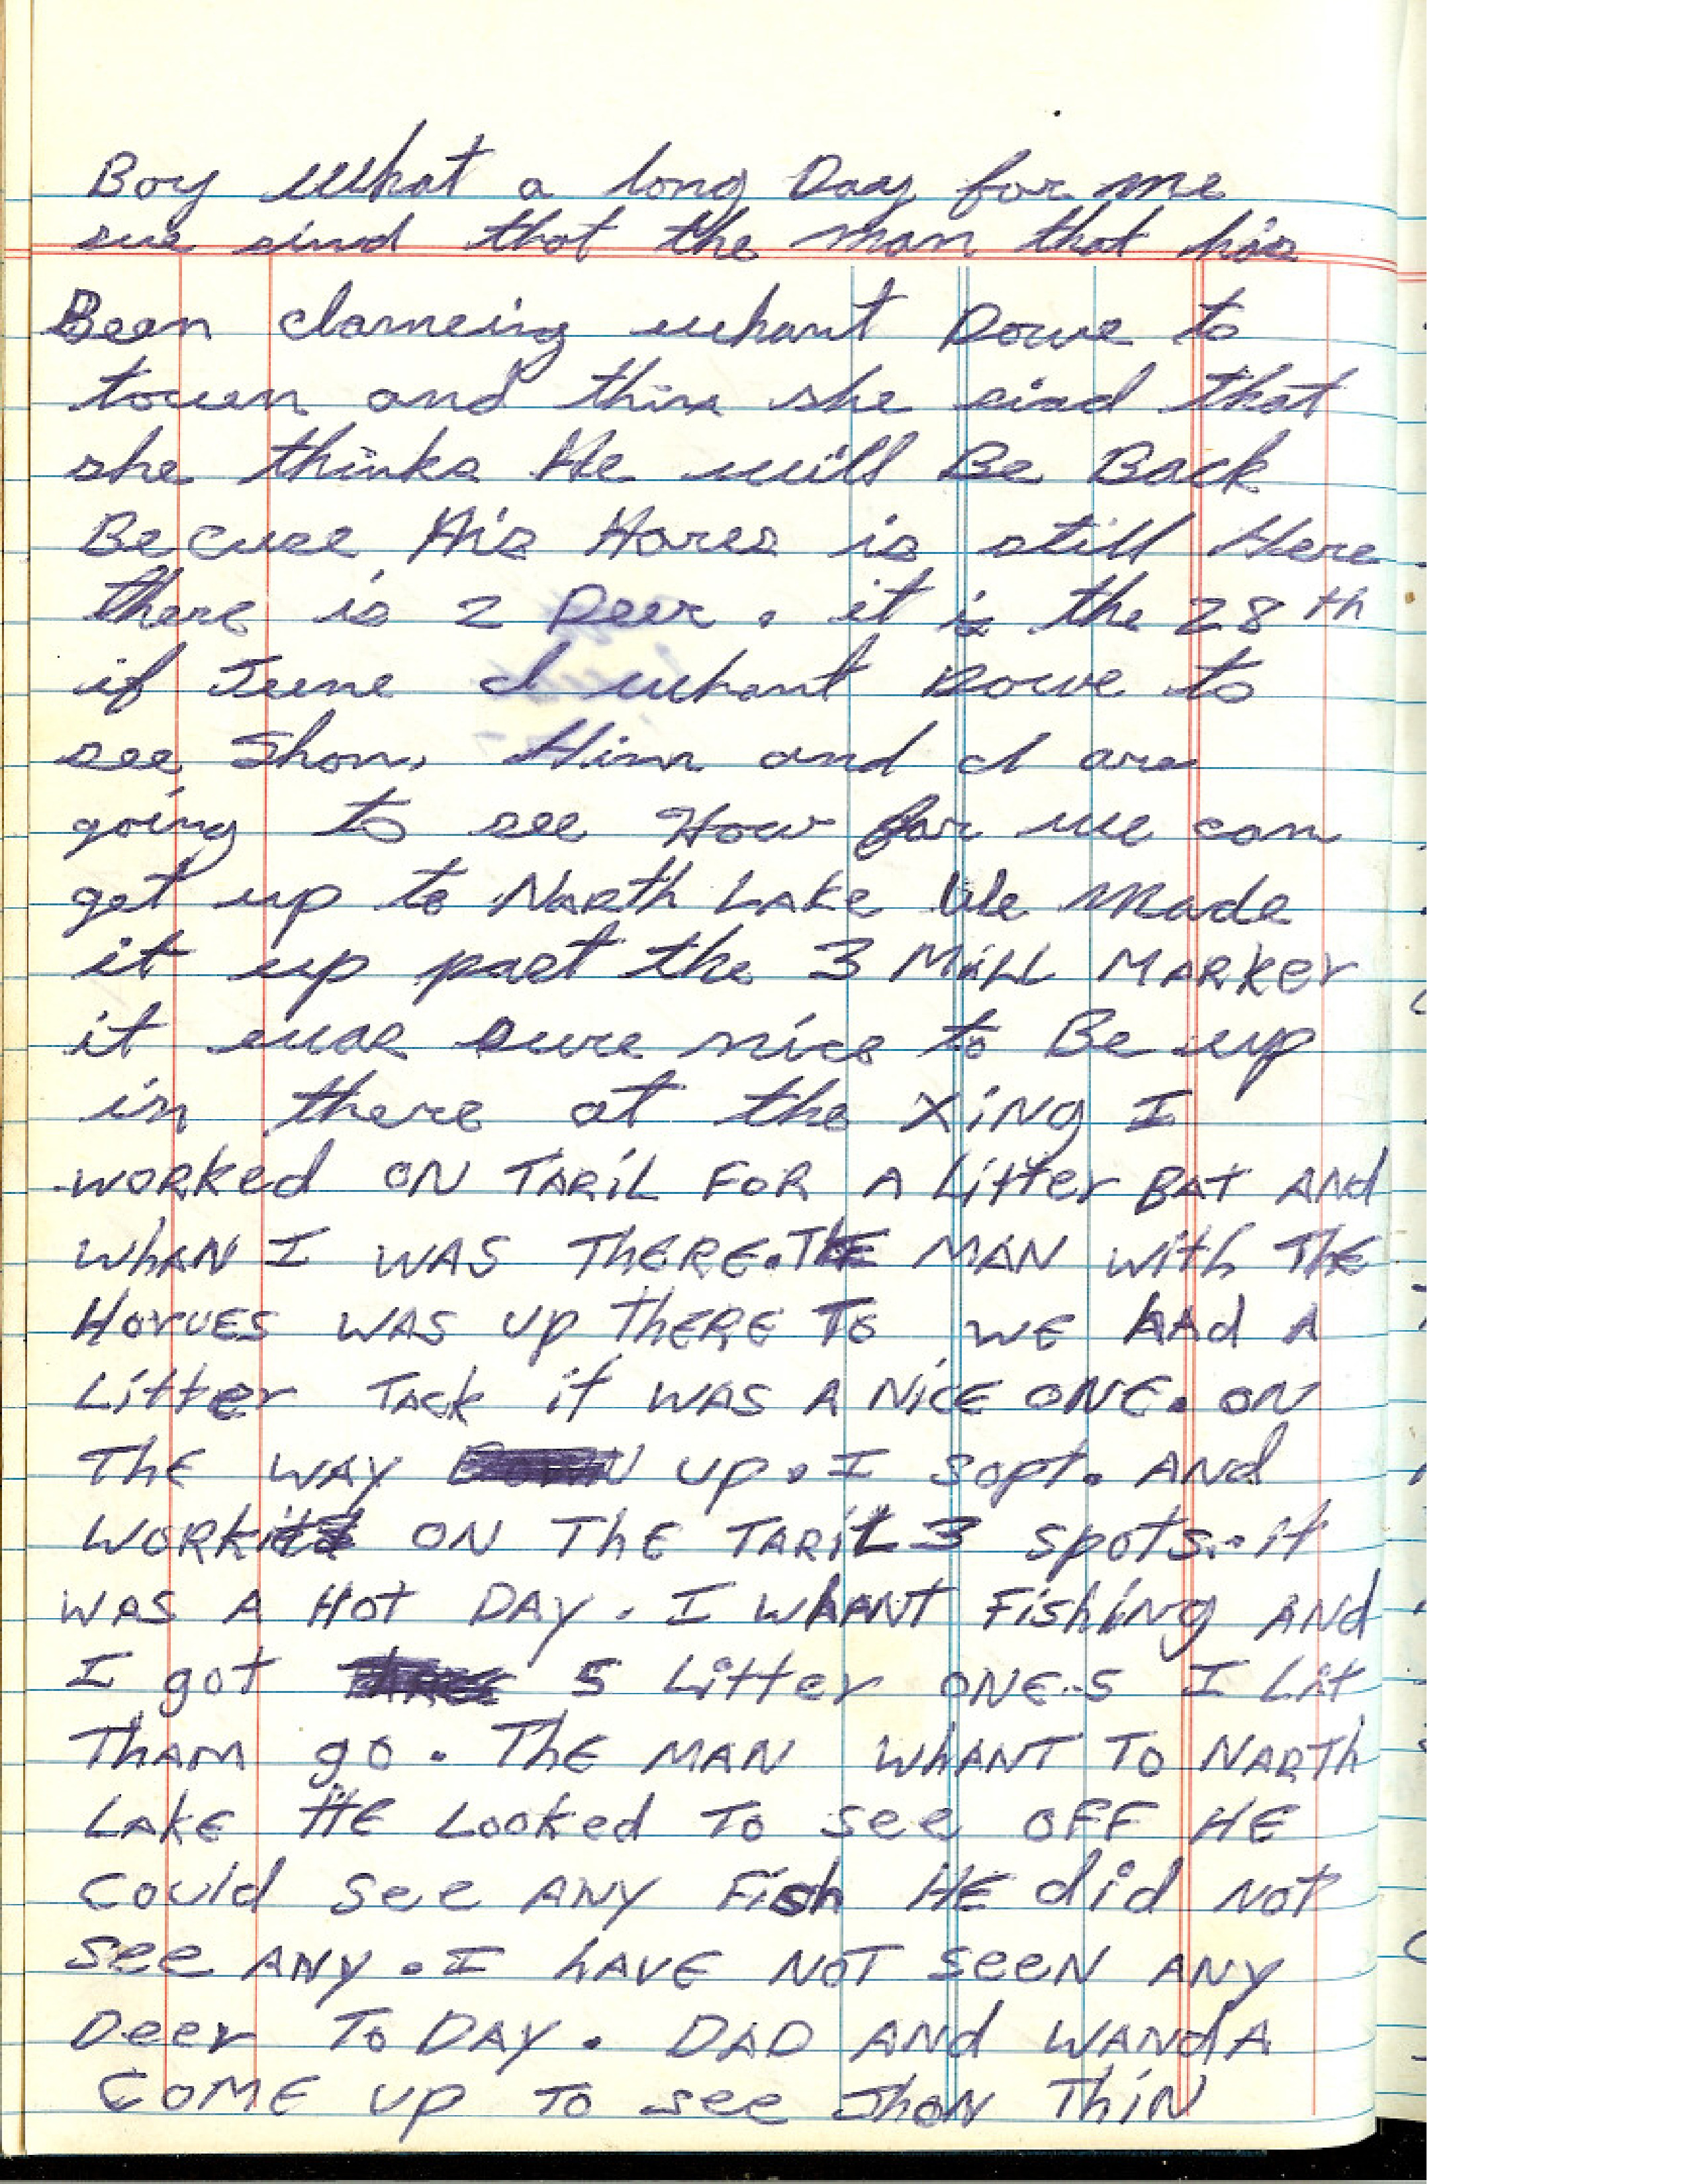 Boy what a long Day for me
sue sind that the man that his
Been clameing whant Dowe to
towen and thine she siad that
she thinks He will Be Back
Becuse His Hores is still Here
there is 2 Deer. it is the 28th
if June I whant Dowe to
see Shon. Him and I are
going to see How far we can
get up to NarTh LAKe We Made
it up past the 3 Mill MARKer
it was sure nice to Be up
in there at the XiNg I
worked ON TARiL FOR A Litter BAt ANd
whAN I WAS ThERE. ThE MAN with ThE
HorvES WAS up thERE To WE hAd A
Litter TAck it WAS A NicE ONE. ON
ThE WAY up. I sopt. ANd
WORKitd ON ThE TARiL 3 spots. it
WAS A Hot DAy. I whANT Fishing ANd
I got 5 Litter ONE.S I Lit
ThAM go. ThE MAN WhANT TO NARTh
LAKE HE Looked To see OFF HE
could see ANy Fish HE did Not
see ANy. I hAVE NOT seeN ANy
Deer To DAy. DAD ANd WANdA
COME up To see JhoN ThiN